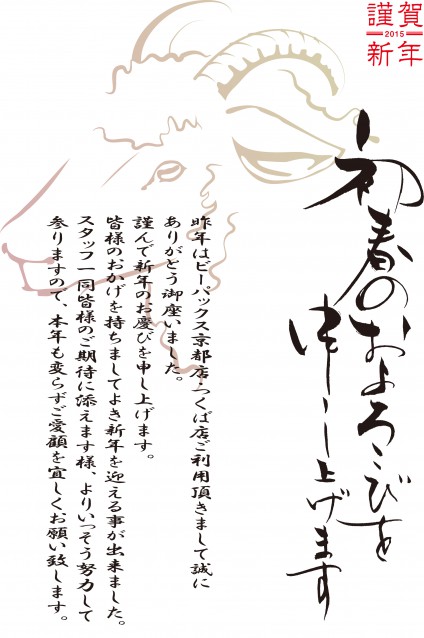 謹賀
2015
新年
初春のおよろこびを
申し上げます
昨年はビーバックス京都店・つくば店ご利用頂きまして誠に
ありがとう御座いました。
謹んで新年のお慶びを申し上げます。
皆様のおかげを持ちましてよき新年を迎える事が出来ました。
スタッフ一同皆様のご期待に添えます様、よりいっそう努力して
参りますので、本年も変らずご愛顧を宜しくお願い致します。